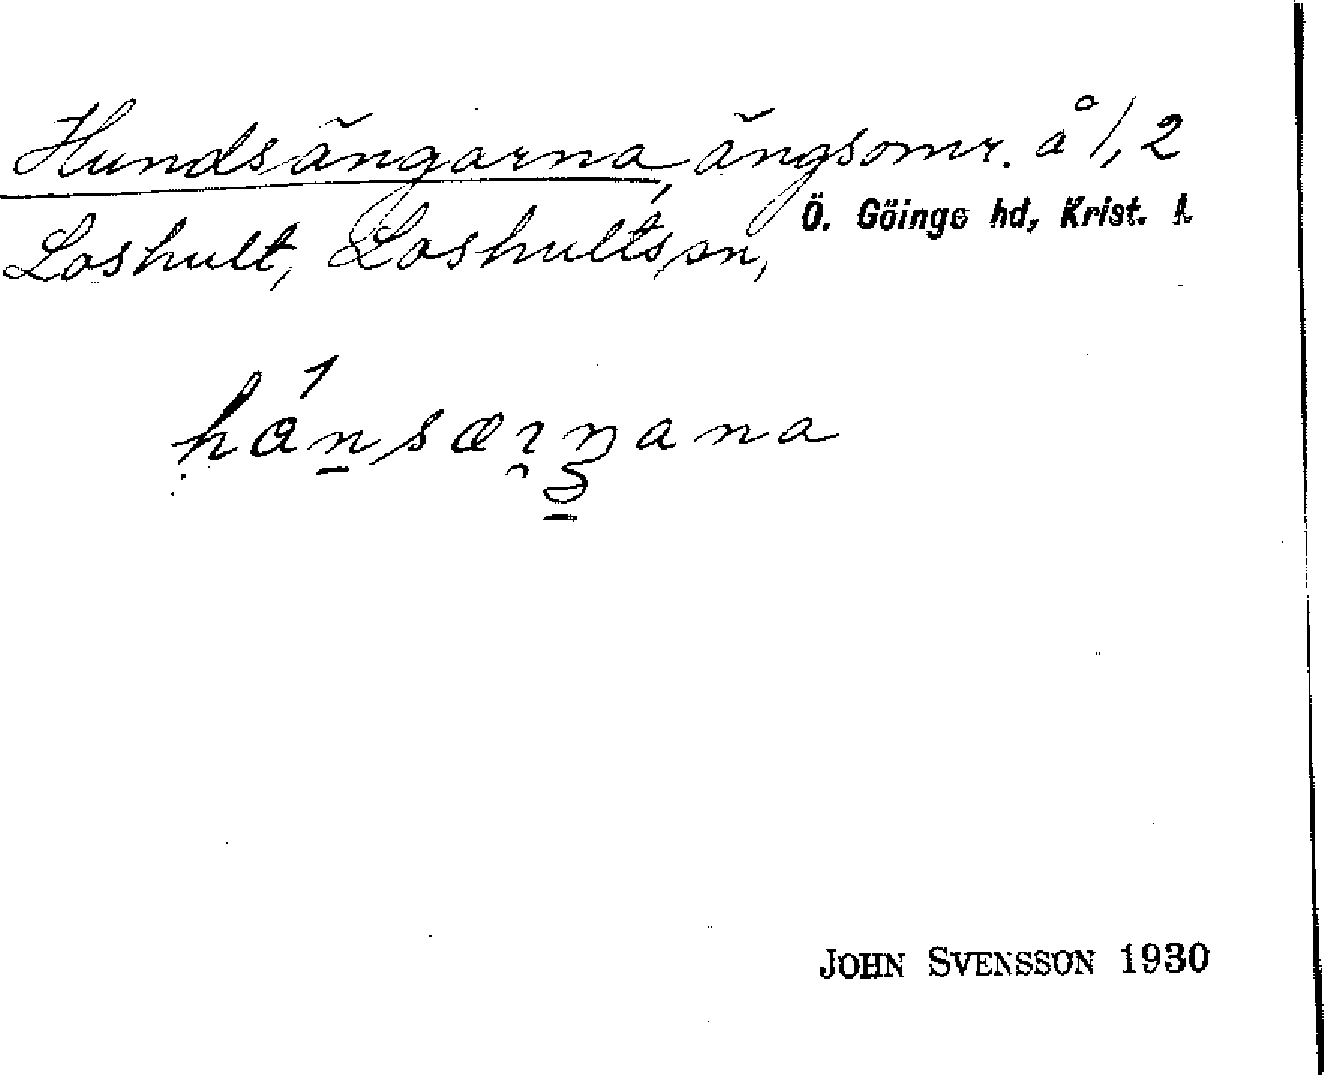 Hundsängarna, ängsomr. å 1, 2
Loshult, Loshults sn, Ö. Göinge hd, Krist. l.
JOHN SVENSSON 1930